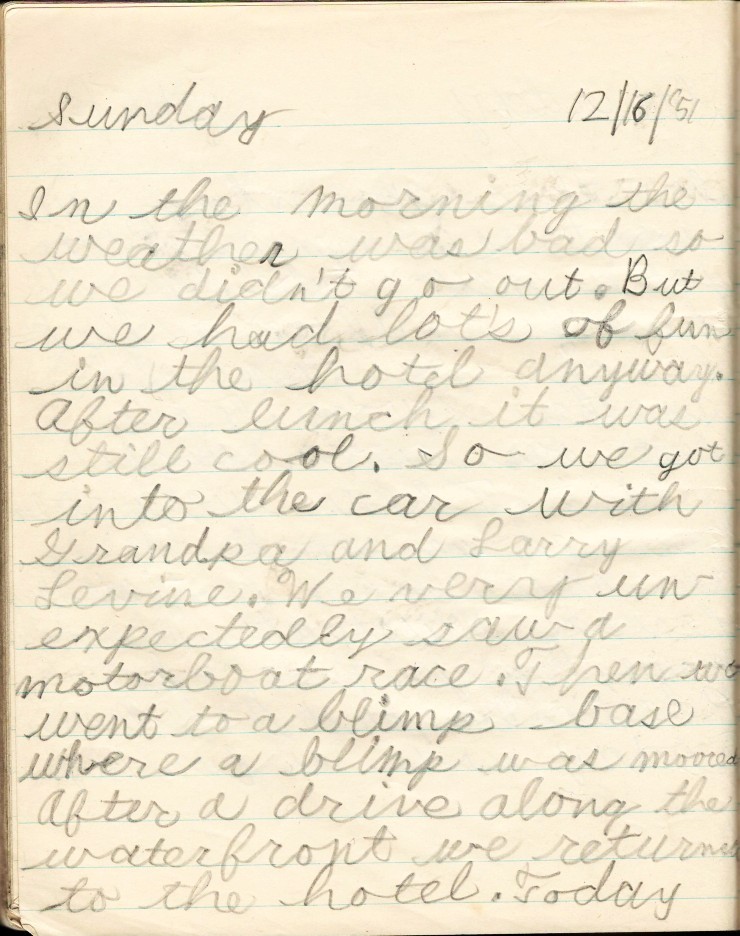 Sunday 12/16/51
In the morning the
weather was bad so
we didn't go out. But
we had lot's of fun
in the hotel anyway.
After lunch it was
still cool. So we got
into the car with
Grandpa and Larry
Levine. We verry un-
expectedly saw a
motorboat race. Then we
went to a blimp base
where a blimp was moored
After a drive along the
waterfront we returned
to the hotel. Today